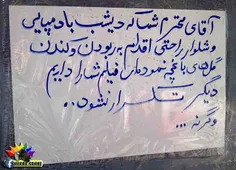 آقای محترم شما که دیشب با دمپایی
و شلوار راحتی اقدام به ربودن و کندن
گل های باغچه نمودید ما فیلم شما را داریم
دیگر تکرار نشود..
وگرنه ...